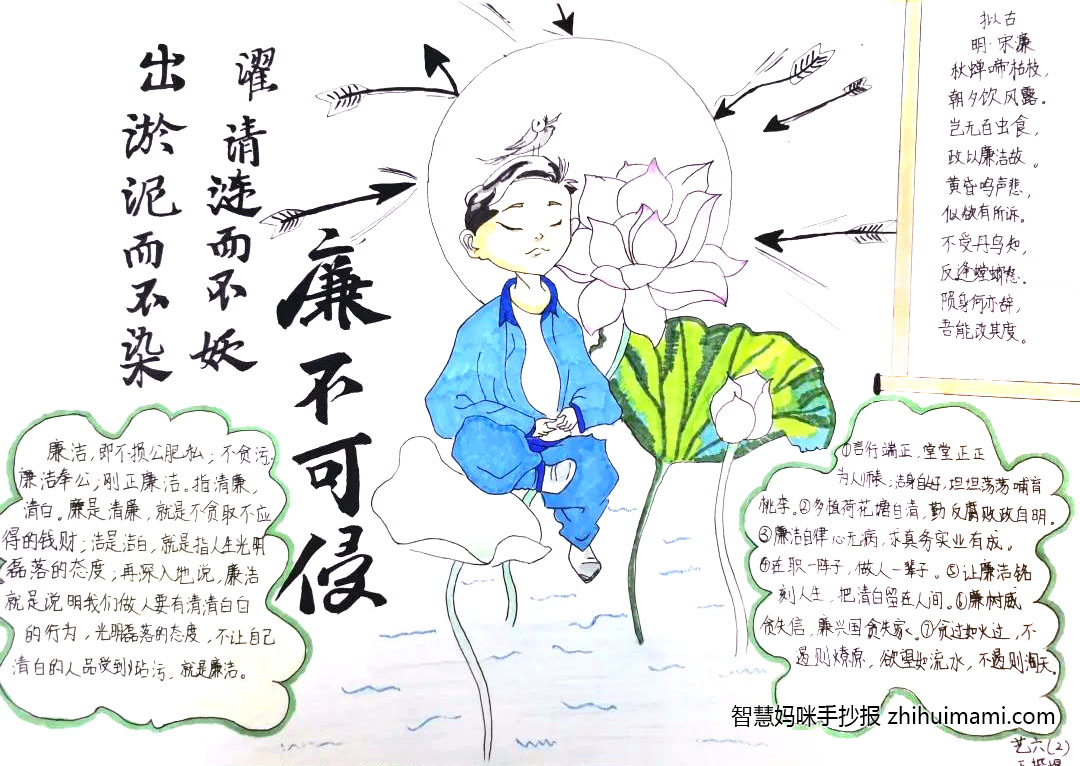 出淤泥而不染
濯请涟而不妖
廉不可侵
拟古
明·宋濂
秋蝉啼枯枝，
朝夕饮风露。
岂无百虫食，
政以廉洁故。
黄昏鸣声悲，
似欲有所诉。
不受丹鸟知，
反逢螳螂怒。
陨身何亦辞，
吾能改其度。
廉洁，即不损公肥私；不贪污；
廉洁奉公，刚正廉洁。指清廉，
清白。廉是清廉，就是不贪取不应
得的钱财；洁是洁白，就是指人生光明
磊落的态度；再深入地说，廉洁
就是说明我们做人要有清清白白
的行为，光明磊落的态度，不让自己
清白的人品受到玷污，就是廉洁。
①言行端正，堂堂正正
为人师表；洁身自好，坦坦荡荡哺育
桃李。②多植荷花塘自清，勤反腐败政自明。
③廉洁自律心无病，求真务实业有成。
④在职一阵子，做人一辈子。⑤让廉洁铭
刻人生，把清白留在人间。⑥廉树威
贪失信，廉兴国贪失家。⑦贪过如火过，不
遏则燎原，欲望如流水，不遏则滔天。
智慧妈咪手抄报 zhihuimami.com
艺六(2)